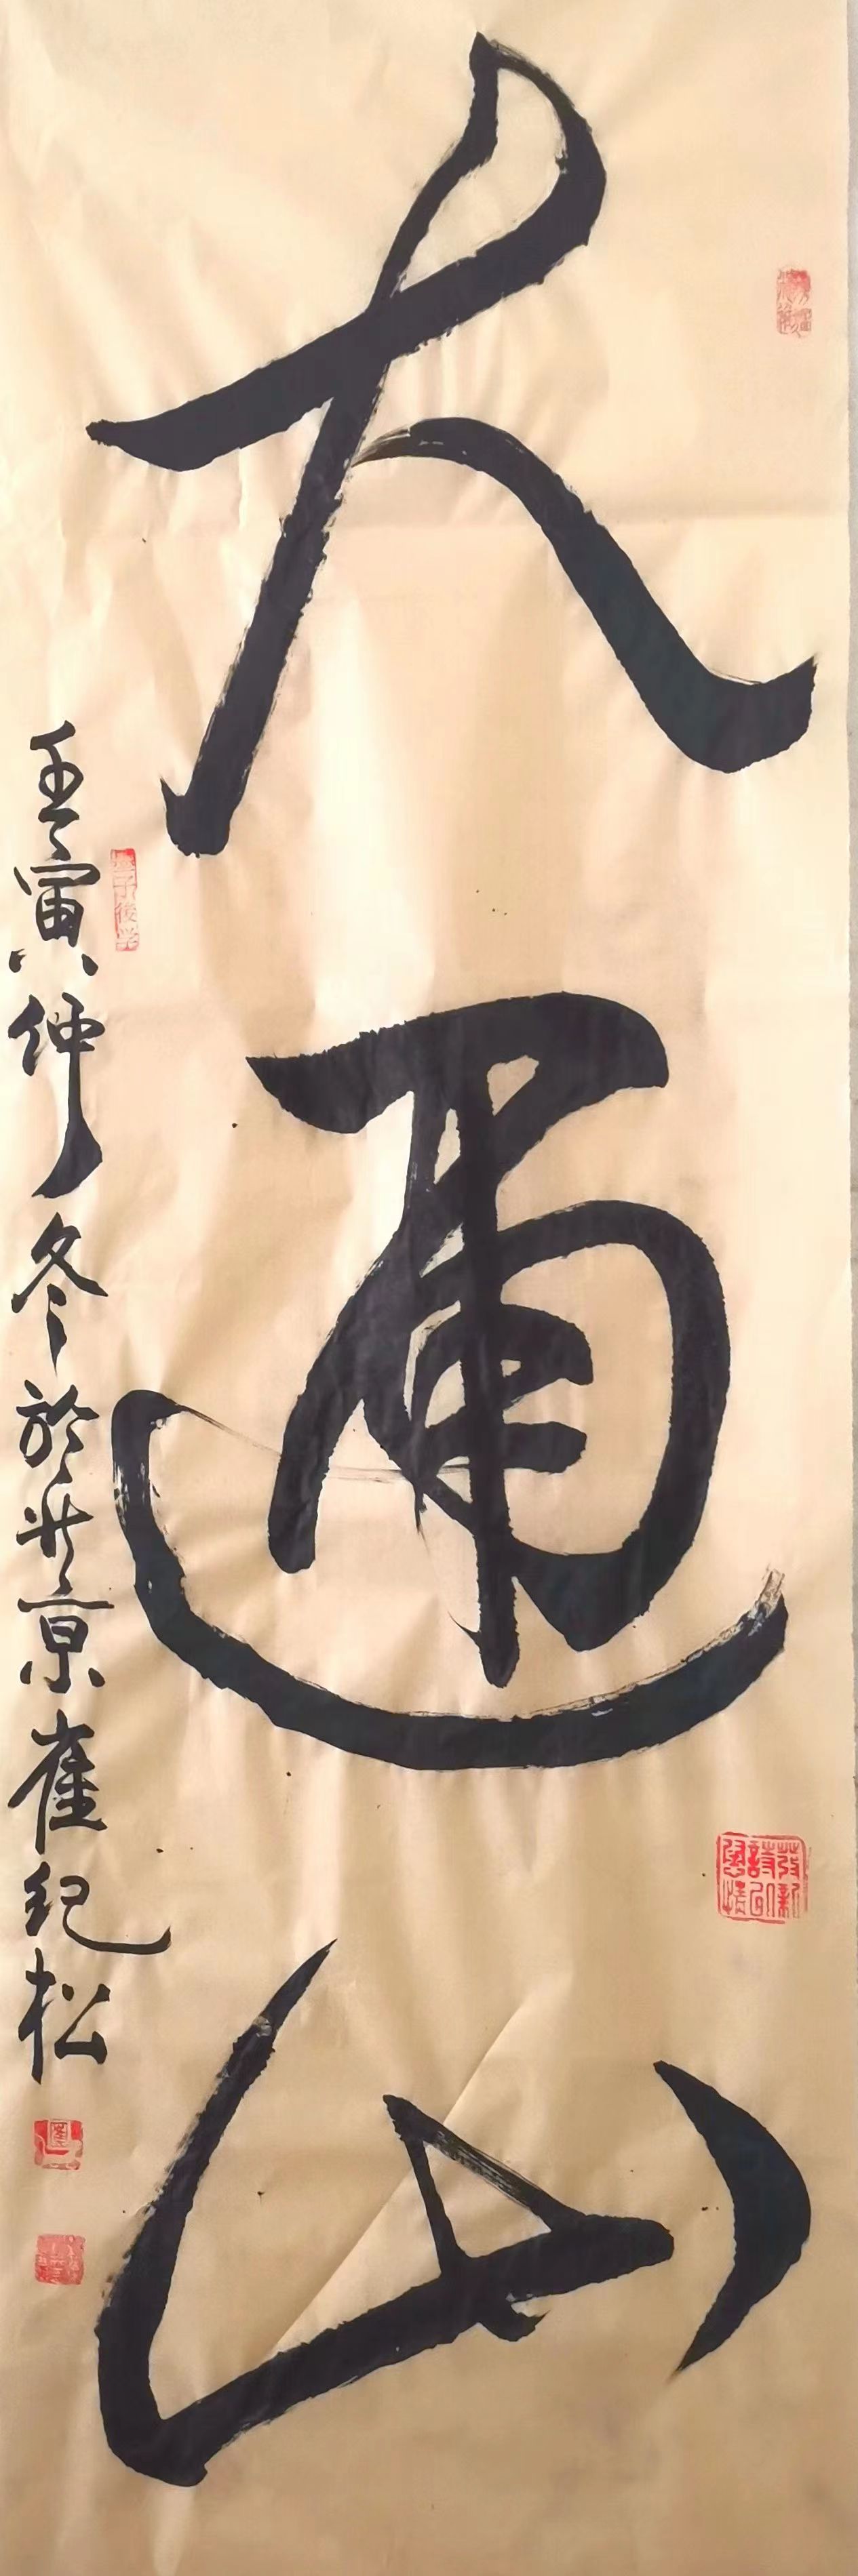 大通山
壬寅仲冬於北京崔纪松